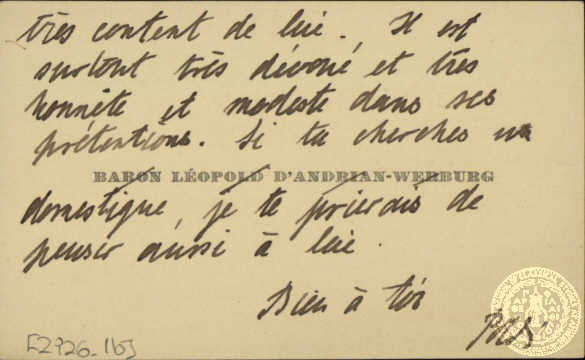 très content de lui. Il est
surtout très dévoué et très
honnête et modeste dans ses
prétentions. Si tu cherches un
BARON LÉOPOLD D'ANDRIAN-WERBURG
domestique, je te prierais de
penser aussi à lui.
Bien à toi
[2726-1b]